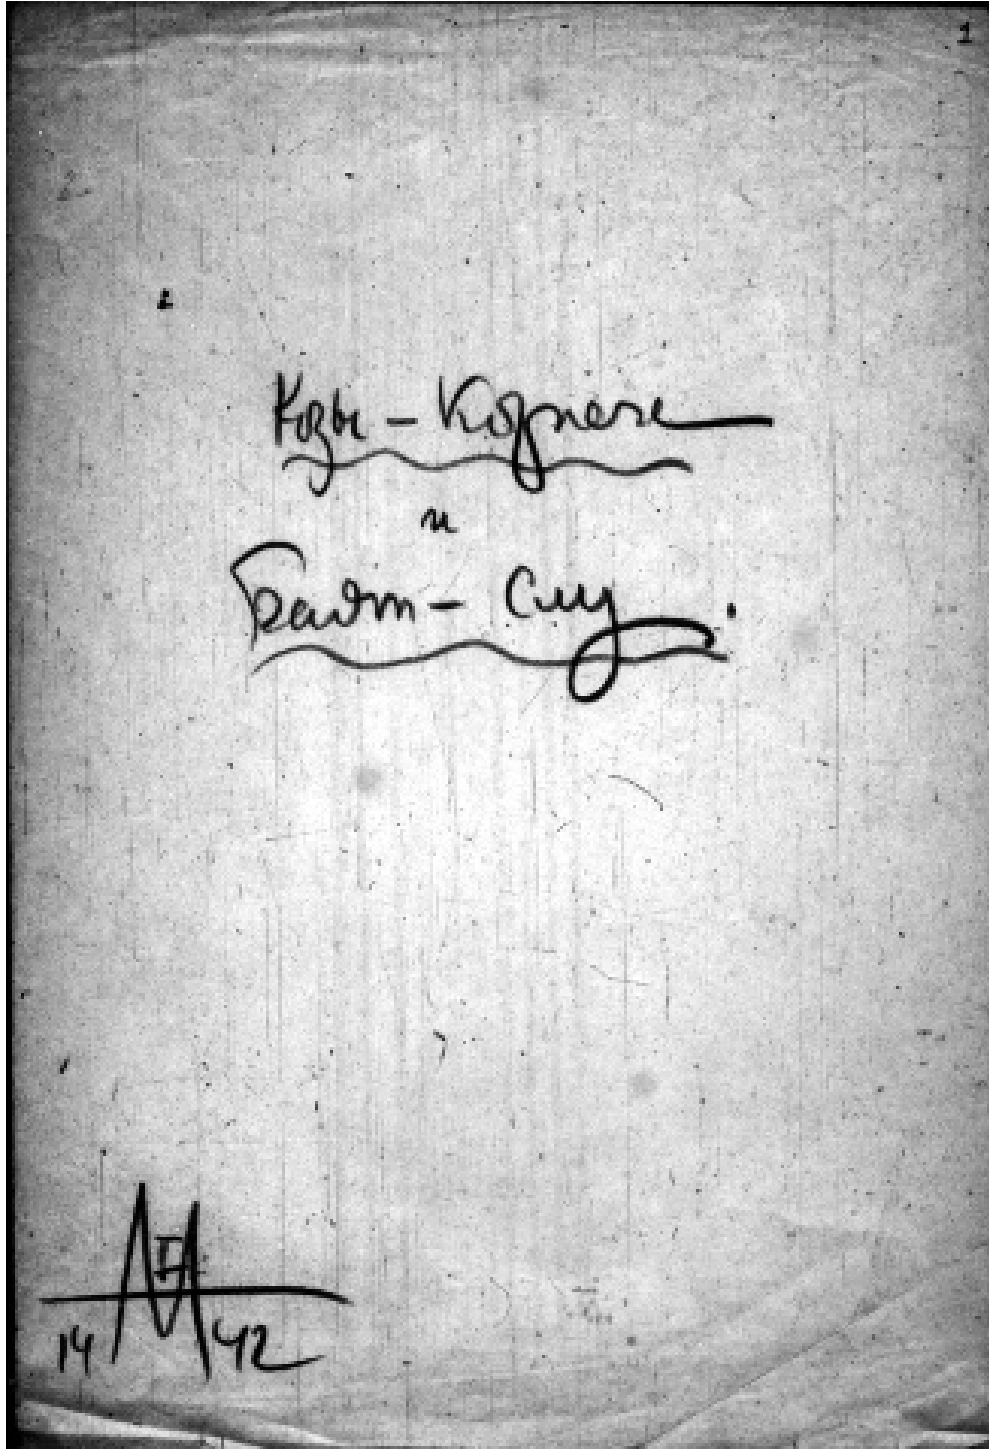 1
Козы-Корпеч
и
Баян-Слу.
14 42